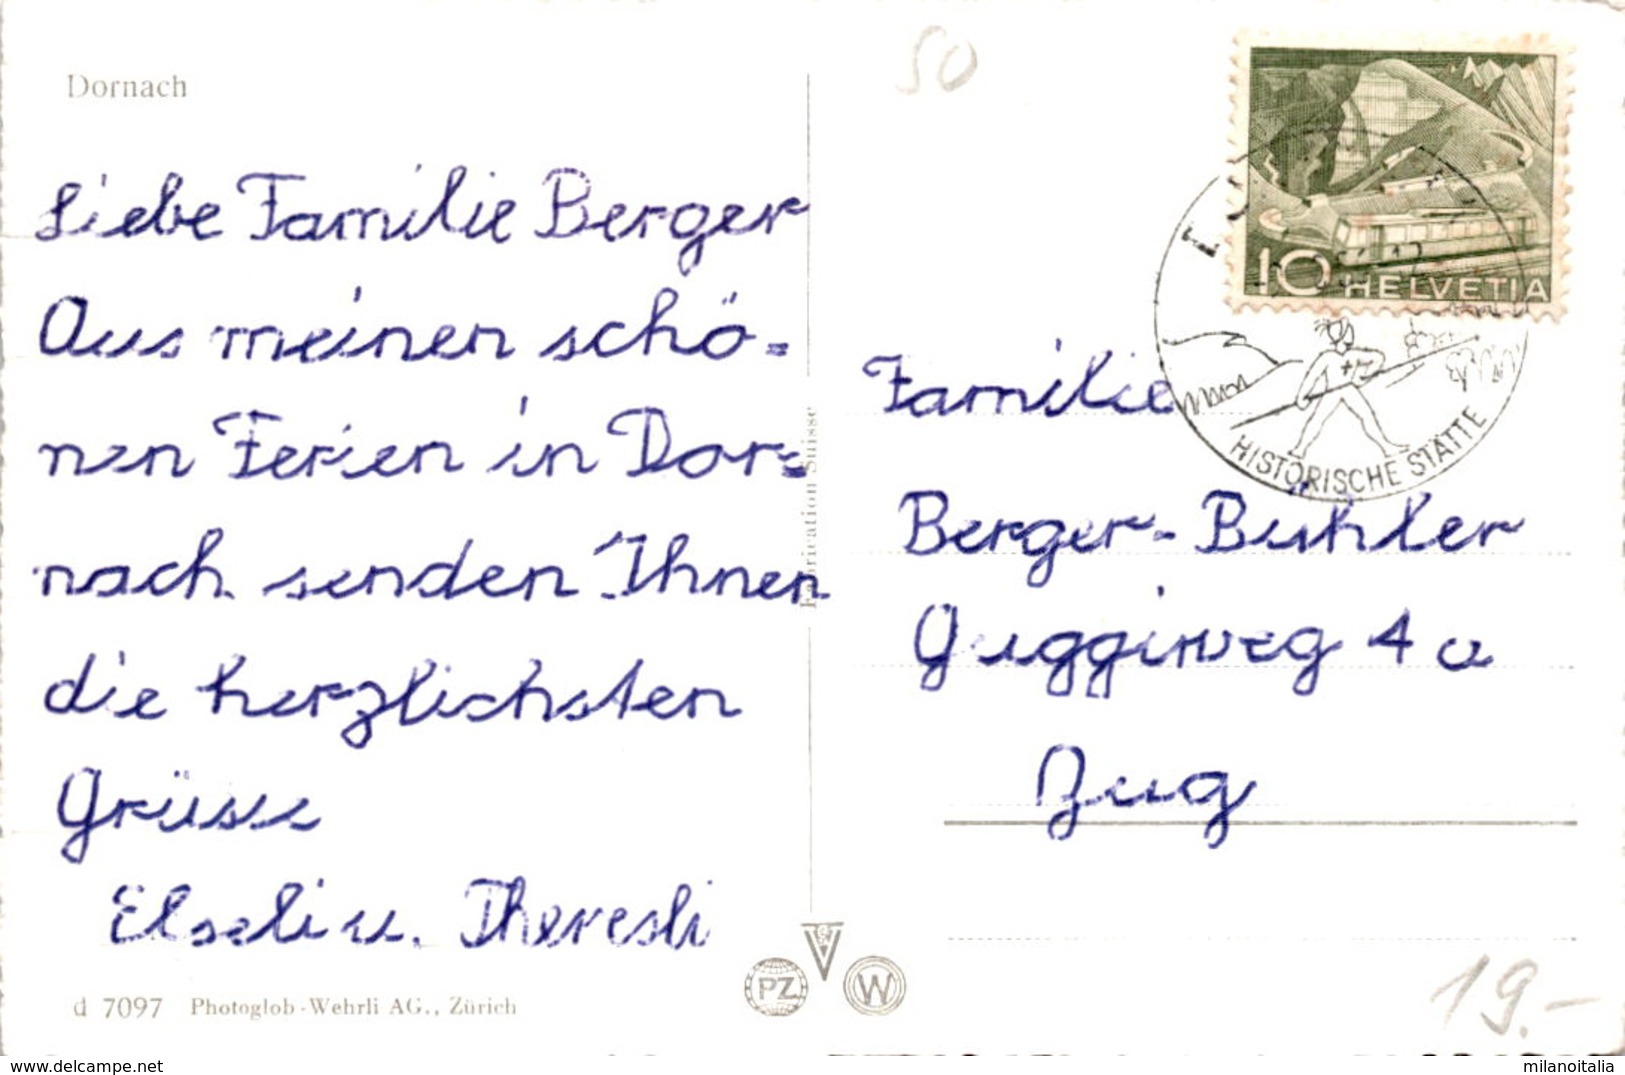 Dornach
50
Liebe Familie Berger
Aus meinen schö-
nen Ferien in Dor-
nach senden Ihnen
die herzlichsten
Grüsse
Elseli u. Theresli
d 7097 Photoglob-Wehrli AG., Zürich
Fabrication Suisse
PZ
W
10 HELVETIA
HISTORISCHE STÄTTE
Familie
Berger-Bühler
Guggiweg 4a
Zug
19.-
www.delcampe.net
milanoitalia